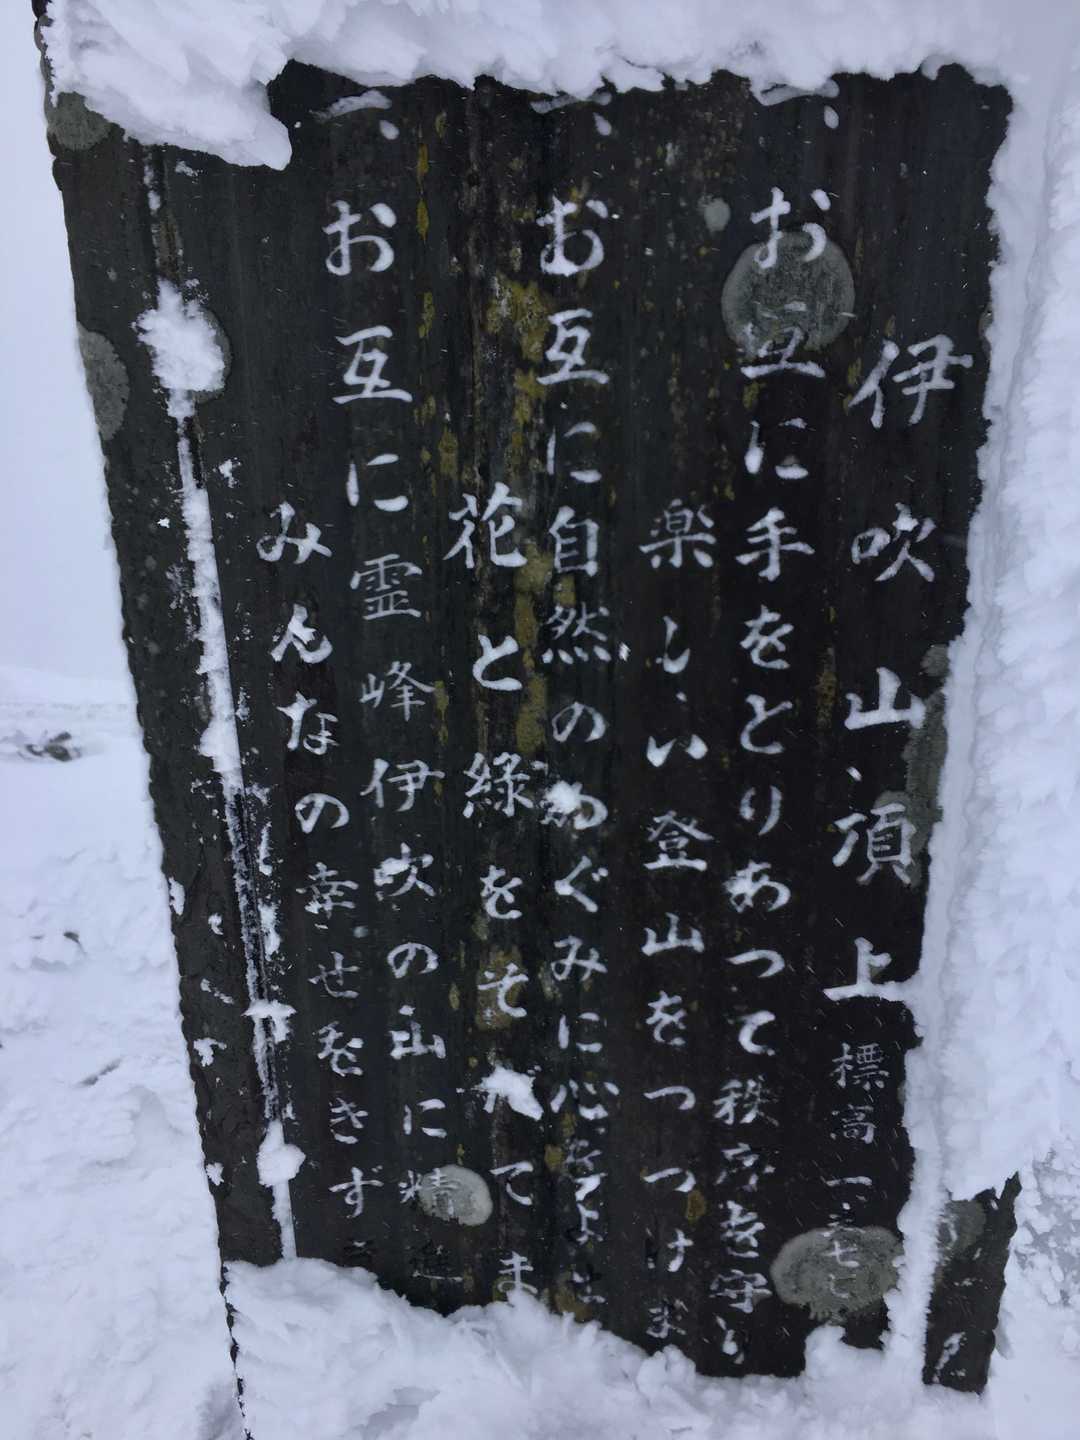 伊吹山頂上 標高一三七七
一、お互に手をとりあって秩序を守り
楽しい登山をつづけま
一、お互に自然のめぐみに心を
花と緑をそ てま
一、お互に霊峰伊吹の山に精進
みんなの幸せをきず